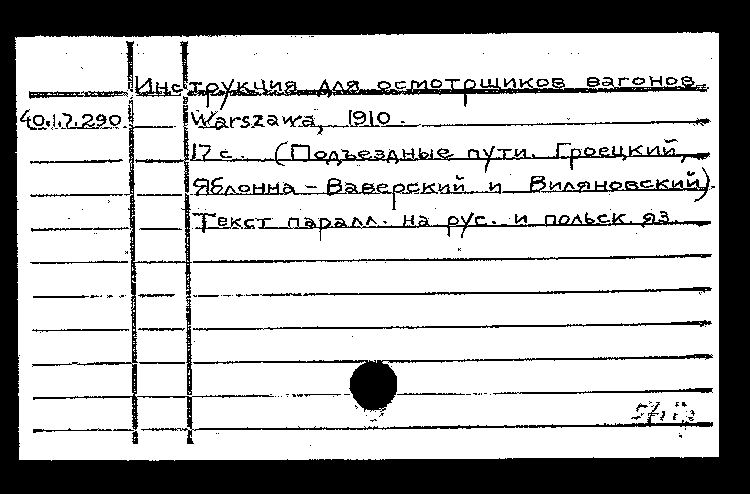 Инструкция для осмотрщиков вагонов
40.1.7.290 Warszawa, 1910.
17 с. (Подъездные пути. Гроецкий,
Яблонна - Ваверский и Виляновский).
Текст паралл. на рус. и польск. яз.